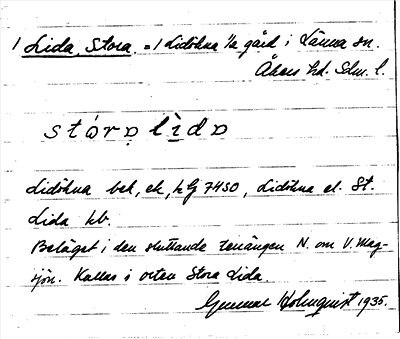 1 Lida, Stora = 1 Lidökna 1/2 gård i Länna sn.
Åkers hd. Sdm. l.
stóra lìda
Lidökna bek, ek, hg 7450, Lidökna el. St.
Lida kb.
Beläget i den sluttande terrängen N. om V. Mag-
sjön. Kallas i orten Stora Lida.
Gunnar Holmquist 1935.